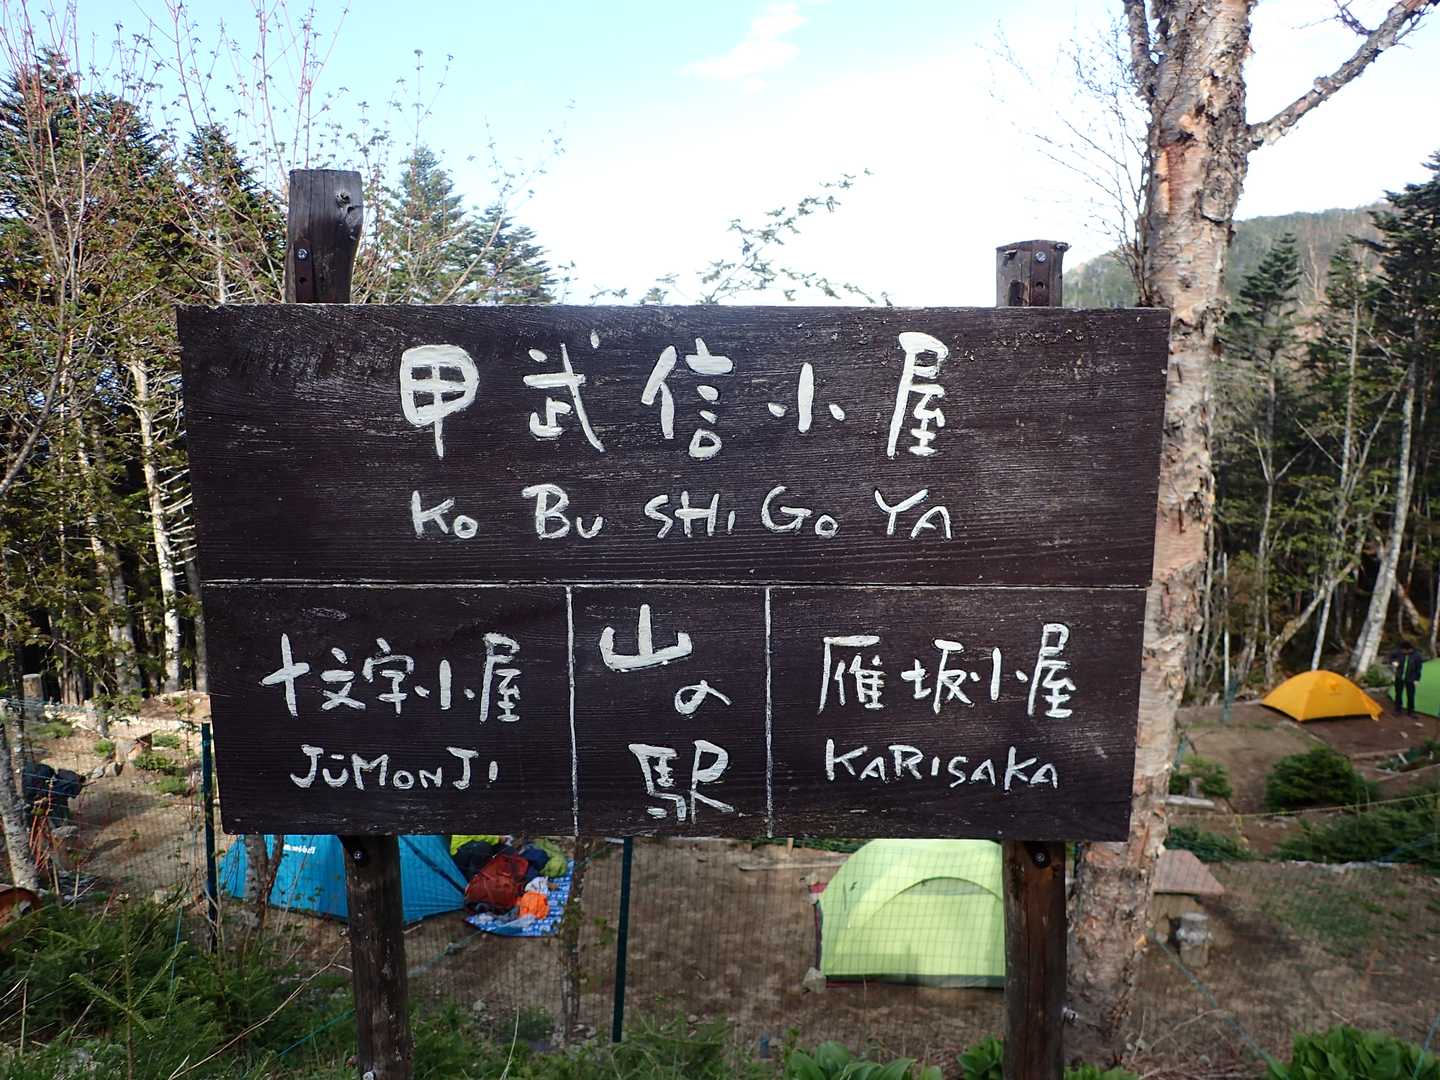 甲武信小屋
KO BU SHI GO YA
十文字小屋
JŪMONJI
山の駅
雁坂小屋
KARISAKA